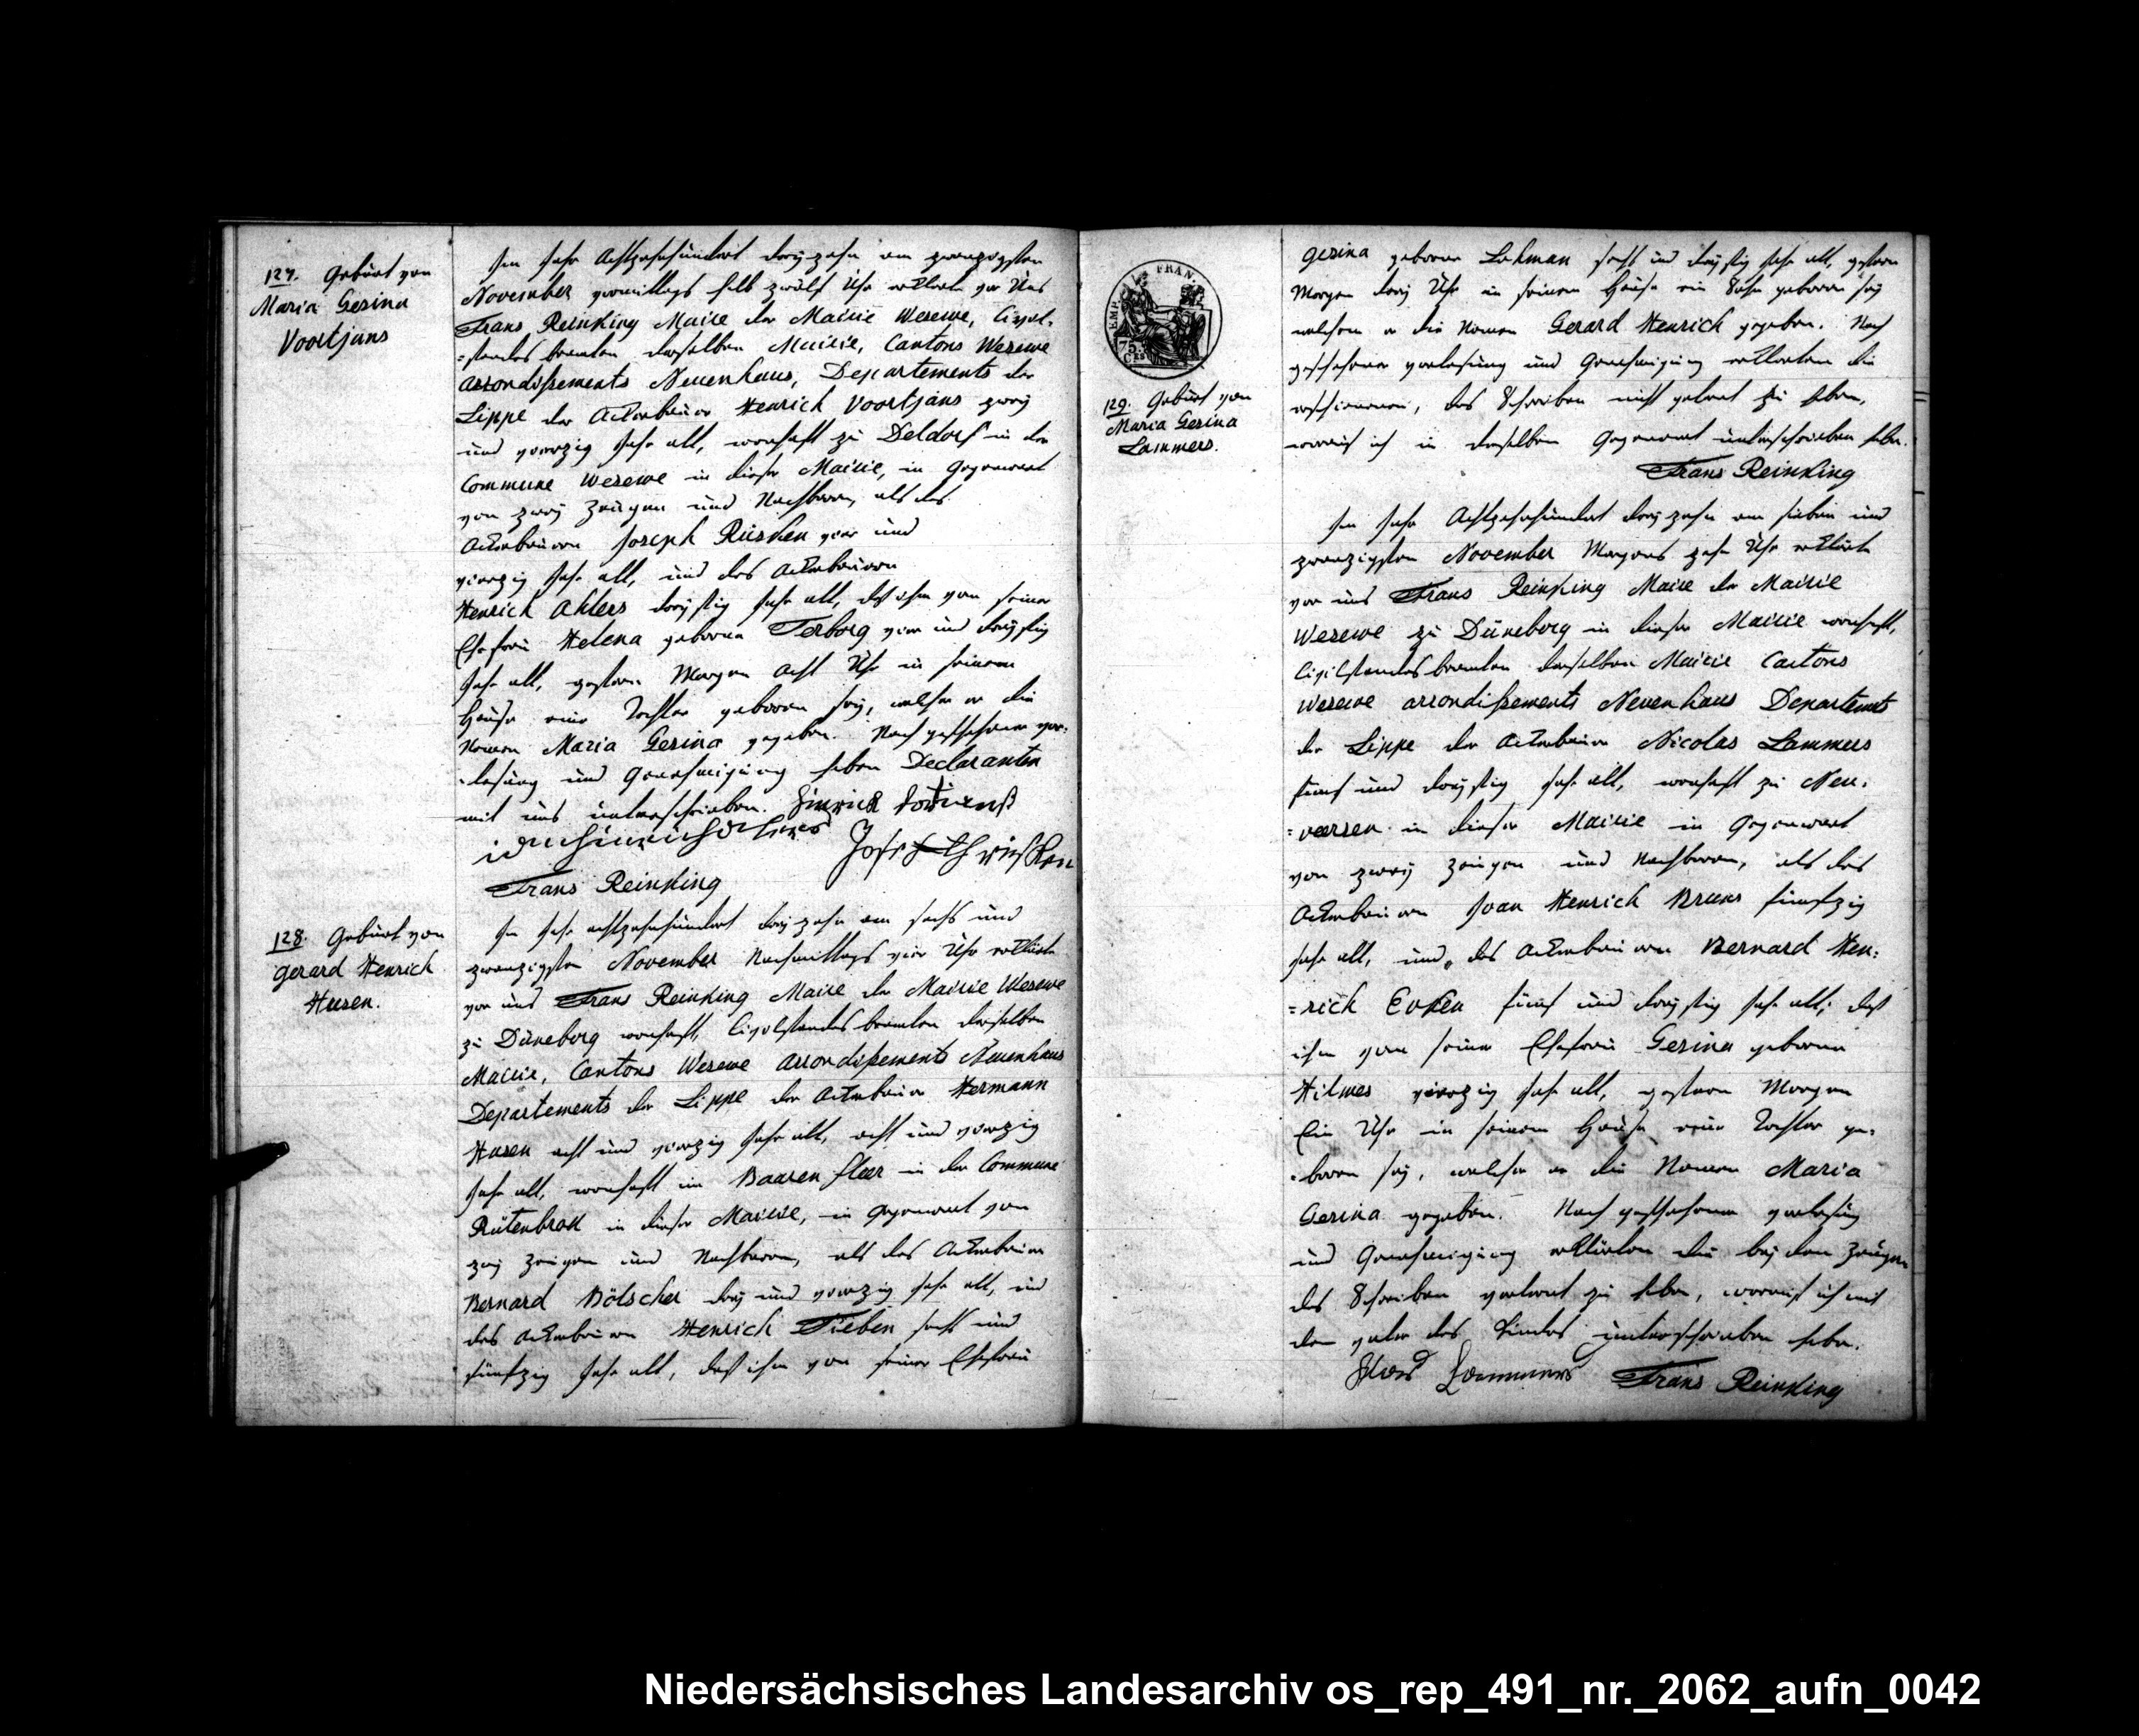 127. Geburt von
Maria Gesina
Voortjans
Im Jahr Achtzehnhundert dreyzehn am zwanzigsten
November vormittags halb zwölf Uhr erklärte vor Uns
Frans Reinking Maire der Mairie Wesewe, Civil-
=standes beamten derselben Mairie, Cantons Wesewe
arrondissements Neuenhaus, Departements der
Lippe der Ackerbauer Henrich Voortjans zwey
und vierzig Jahr alt, wohnhaft zu Deldorf in der
Commune Wesewe in dieser Mairie, in Gegenwart
von zwey Zeugen und Nachbaren, als des
Ackerbauern Joseph Rüsken vier und
vierzig Jahr alt, und des Ackerbauern
Henrich Ahlers dreyßig Jahr alt, daß ihm von seiner
Ehefrau Helena geborne Terborg vier und dreyßig
Jahr alt, gestern Morgen Acht Uhr in seinem
Hause eine Tochter geboren sey, welcher er die
Namen Maria Gesina gegeben. Nach geschehener vor-
-lesung und Genehmigung haben Declaranten
mit uns unterschrieben. Hinrich
Joseph rüsken
Frans Reinking
128. Geburt von
Gerard Henrich
Husen.
Im Jahr achtzehnhundert dreyzehn am sechs und
zwanzigsten November Nachmittags vier Uhr erklärte
vor uns Frans Reinking Maire der Mairie Wesewe
zu Düneborg wohnhaft, Civilstandes beamten derselben
Mairie, Cantons Wesewe arrondissements Neuenhaus
Departements der Lippe der Ackerbauer Hermann
Husen acht und vierzig Jahr alt, acht und vierzig
Jahr alt, wohnhaft im Baaren fleer in der Commune
Rütenbrok in dieser Mairie, in Gegenwart von
zwey Zeugen und Nachbaren, als des Ackerbauern
Bernard Bölscher drey und vierzig Jahr alt, und
des Ackerbauern Henrich Tieben sechs und
fünfzig Jahr alt, daß ihm von seiner Ehefrau
EMP. FRAN.
75
Ces
Gesina geborne Lahman sechs und dreyßig Jahr alt, gestern
Morgen drey Uhr in seinem Hause ein Sohn geboren sey
welchem er die Namen Gerard Henrich gegeben. Nach
geschehener vorlesung und Genehmigung erklärten die
erschienenen, das Schreiben nicht gelernt zu haben,
worauf ich in derselben Gegenwart unterschrieben habe.
Frans Reinking
129. Geburt von
Maria Gesina
Lammers.
Im Jahr Achtzehnhundert dreyzehn am sieben und
zwanzigsten November Morgens zehn Uhr erklärte
vor uns Frans Reinking Maire der Mairie
Wesewe zu Düneborg in dieser Mairie wohnhaft,
Civilstandes beamten derselben Mairie Cantons
Wesewe arrondissements Neuenhaus Departements
der Lippe der Ackerbauer Nicolas Lammers
fünf und dreyßig Jahr alt, wohnhaft zu Neu-
=vaersen in dieser Mairie in Gegenwart
von zwey Zeugen und Nachbaren, als des
Ackerbauern Joan Henrich Bruns fünfzig
Jahr alt, und des Ackerbauern Bernard Hen=
=rich Evken fünf und dreyßig Jahr alt, daß
ihm von seiner Ehefrau Gesina geborne
Hilmes vierzig Jahr alt, gestern Morgen
Ein Uhr in seinem Hause eine Tochter ge-
-boren sey, welcher er die Namen Maria
Gesina gegeben. Nach geschehener vorlesung
und Genehmigung erklärten die beyden Zeugen
das Schreiben gelernt zu haben, worauf ich mit
dem vater des Kindes unterschrieben habe.
Lammers Frans Reinking
Niedersächsisches Landesarchiv os_rep_491_nr._2062_aufn_0042